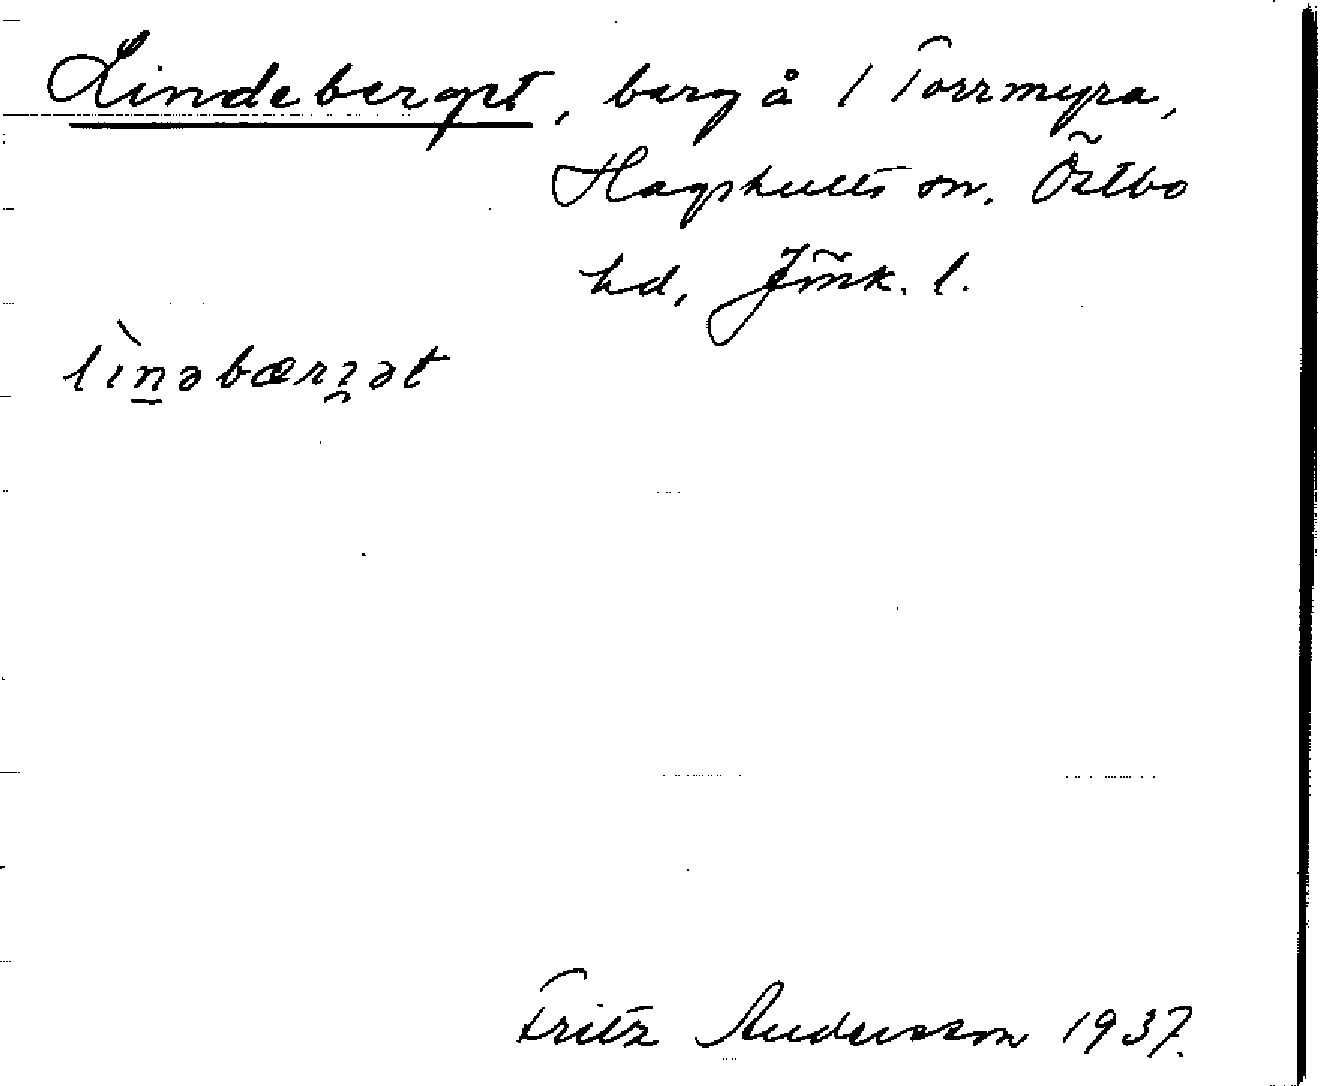 Lindeberget, berg å 1 Torrmyra,
Hagshults sn. Östbo
hd, Jönk. l.
lìnəbærɜət
Fritz Andersson 1937.